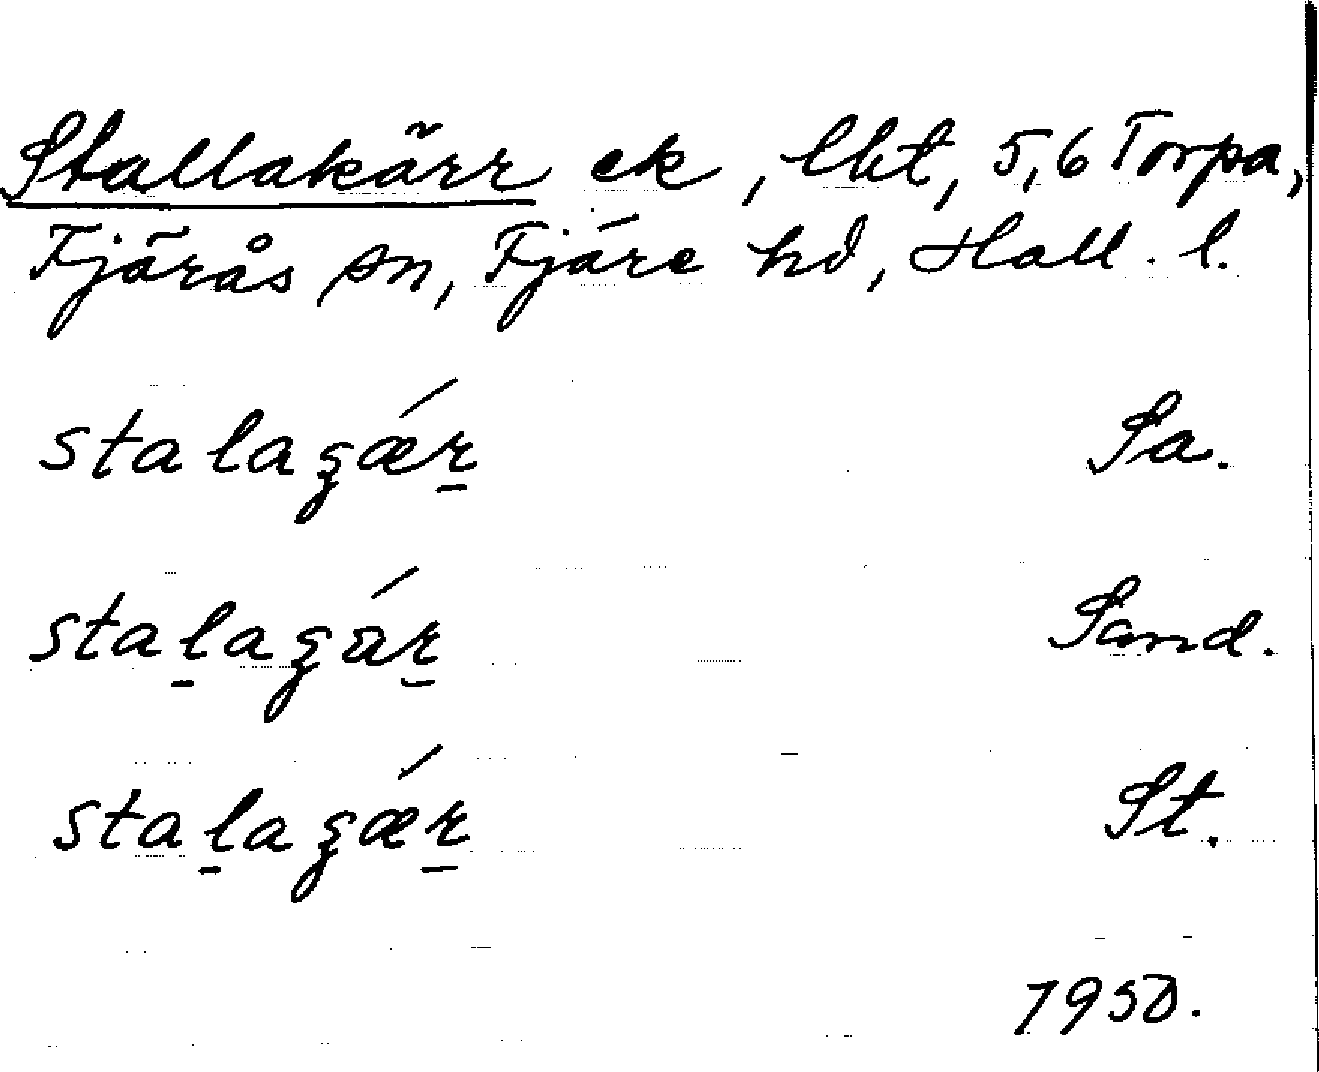 Stallakärr ek, lht, 5,6 Torpa,
Fjärås sn, Fjäre hd, Hall. l.
stalagǽr̲ Sa.
stal̲agár̲ Sand.
stal̲agǽr̲ St.
1950.